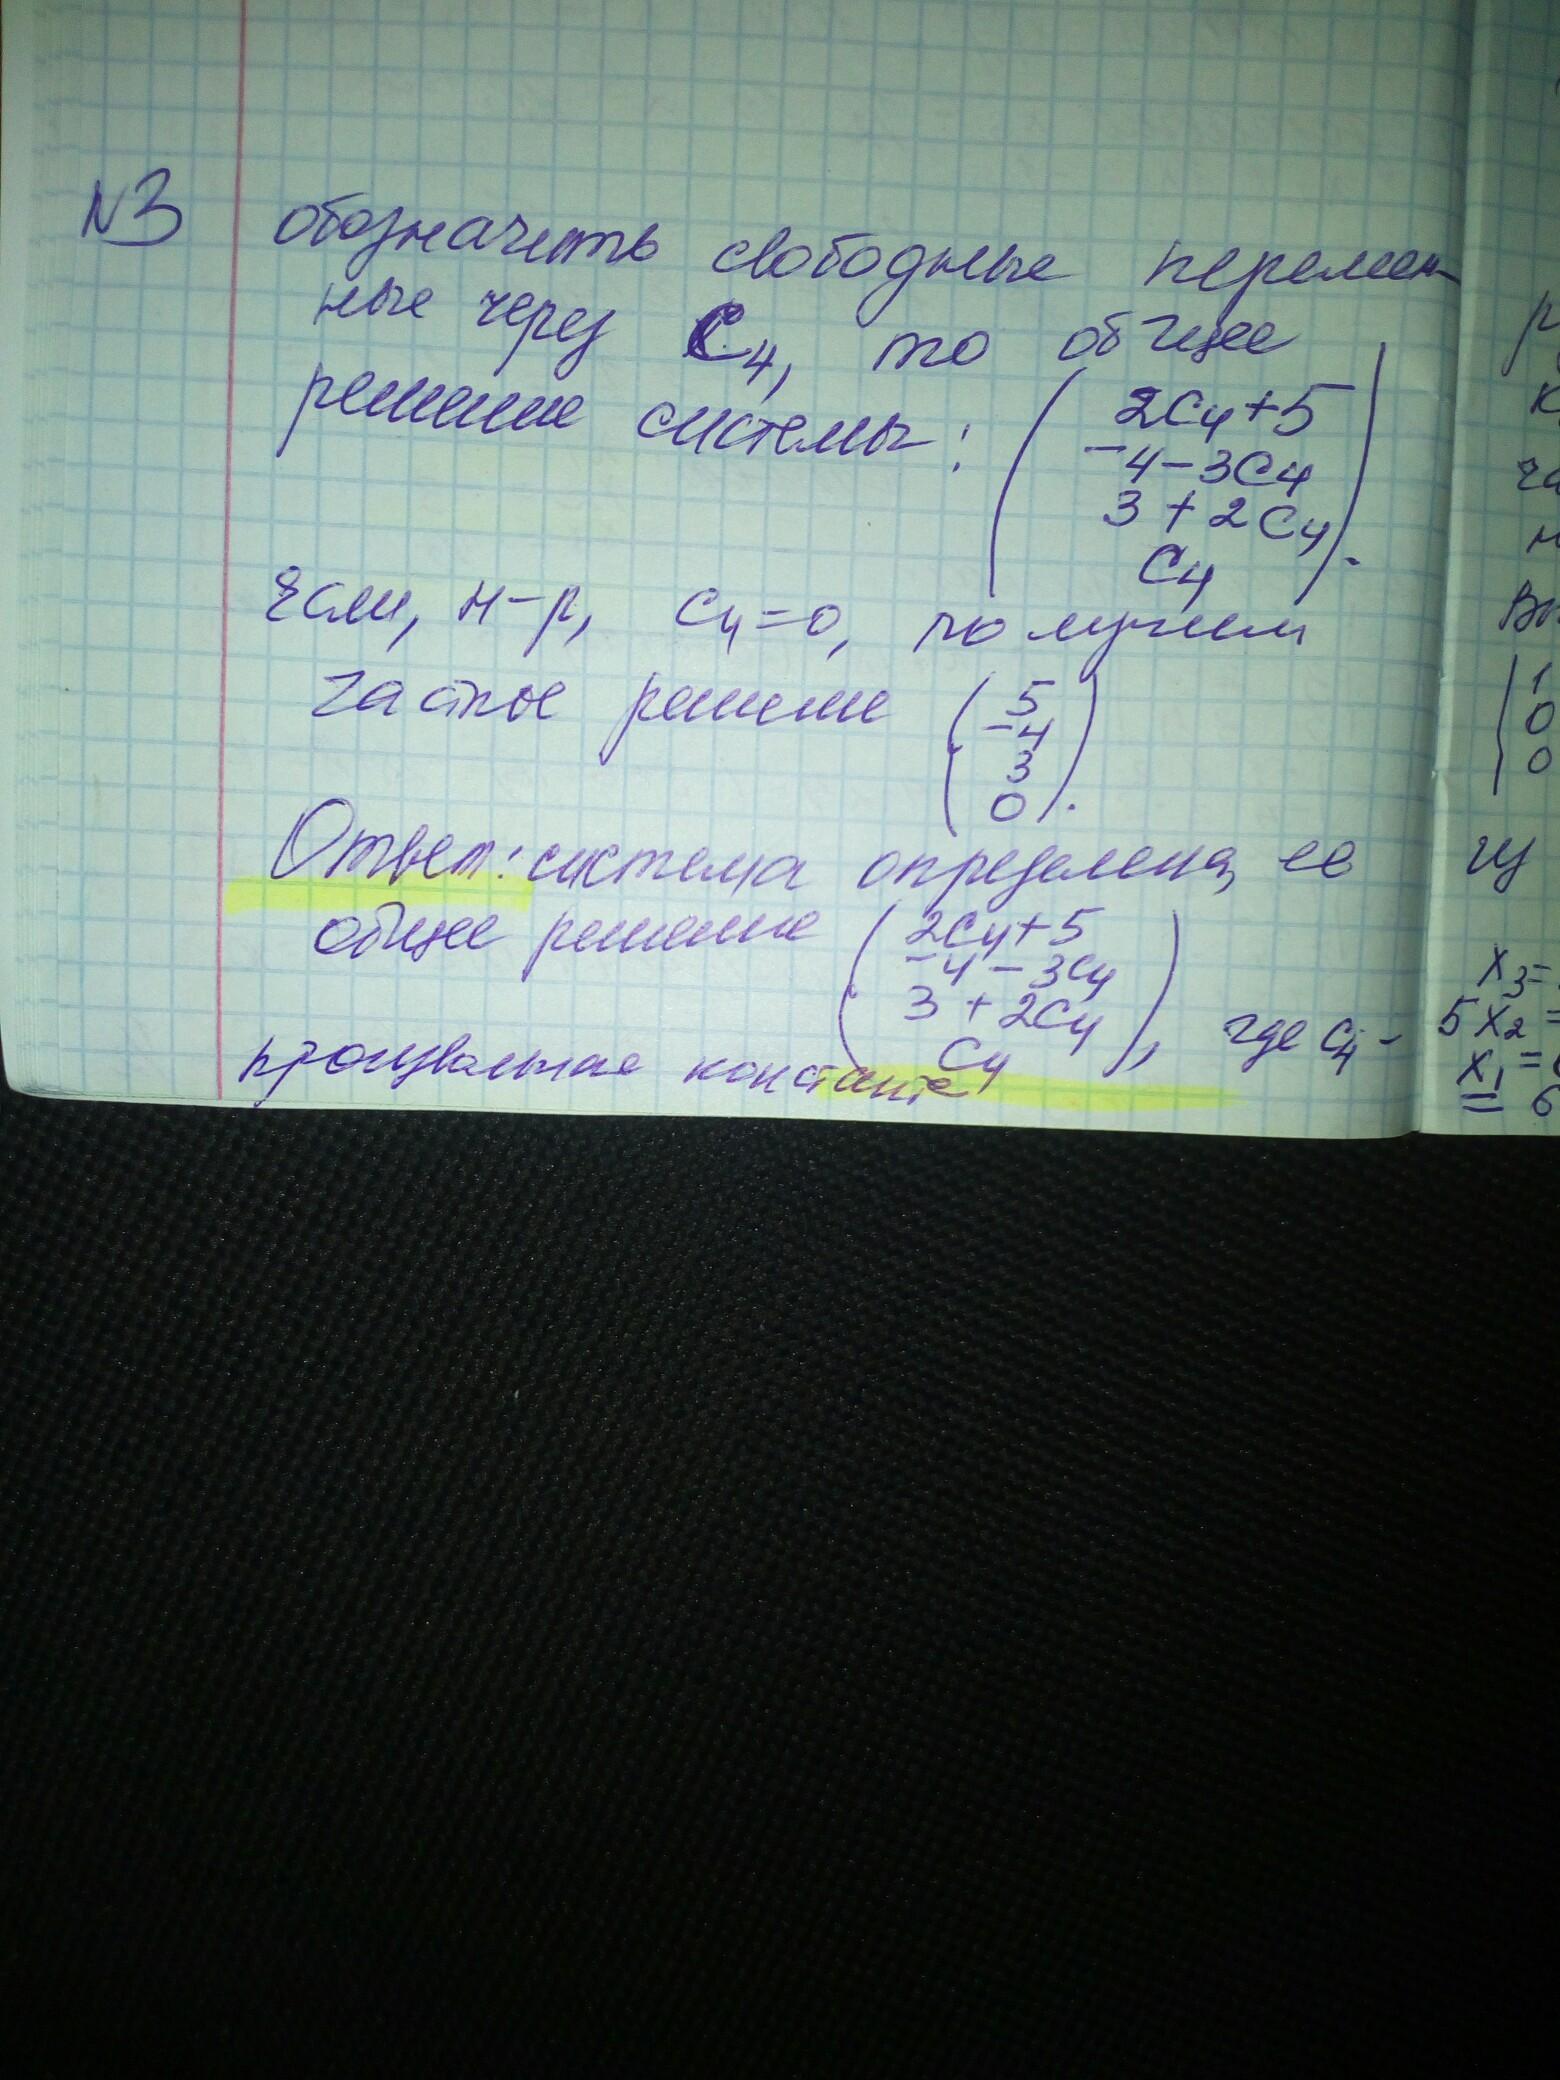 N3 обозначить свободные перемен
ные через C₄, то общее
решение системы: (2C₄+5
-4-3C₄
3+2C₄
C₄).
Если, н-р, C₄=0, получим
частное решение (5
-4
3
0).
Ответ: система определена, ее
общее решение (2C₄+5
-4-3C₄
3+2C₄
C₄), где C₄-
произвольная константа
1
0
0
x₃=
5x₂=
x₁=
6